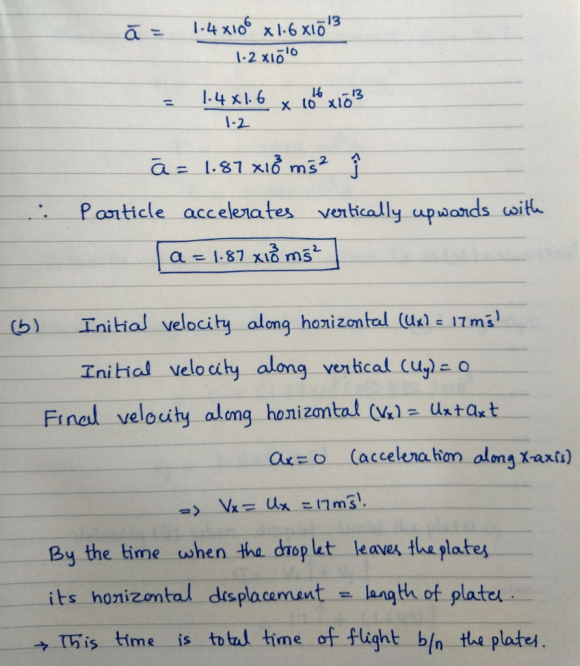 ā = 1.4 x10⁶ x 1.6 x10⁻¹³ / 1.2 x10⁻¹⁰
= 1.4 x 1.6 / 1.2 x 10¹⁶ x10⁻¹³
ā = 1.87 x10³ ms⁻² ĵ
∴ Particle accelerates vertically upwards with
a = 1.87 x10³ ms⁻²
(b) Initial velocity along horizontal (Ux) = 17ms⁻¹
Initial velocity along vertical (Uy) = 0
Final velocity along horizontal (Vx) = Ux + axt
ax = 0 (acceleration along x-axis)
=> Vx = Ux = 17ms⁻¹.
By the time when the droplet leaves the plates
its horizontal displacement = length of plates.
→ This time is total time of flight b/n the plates.